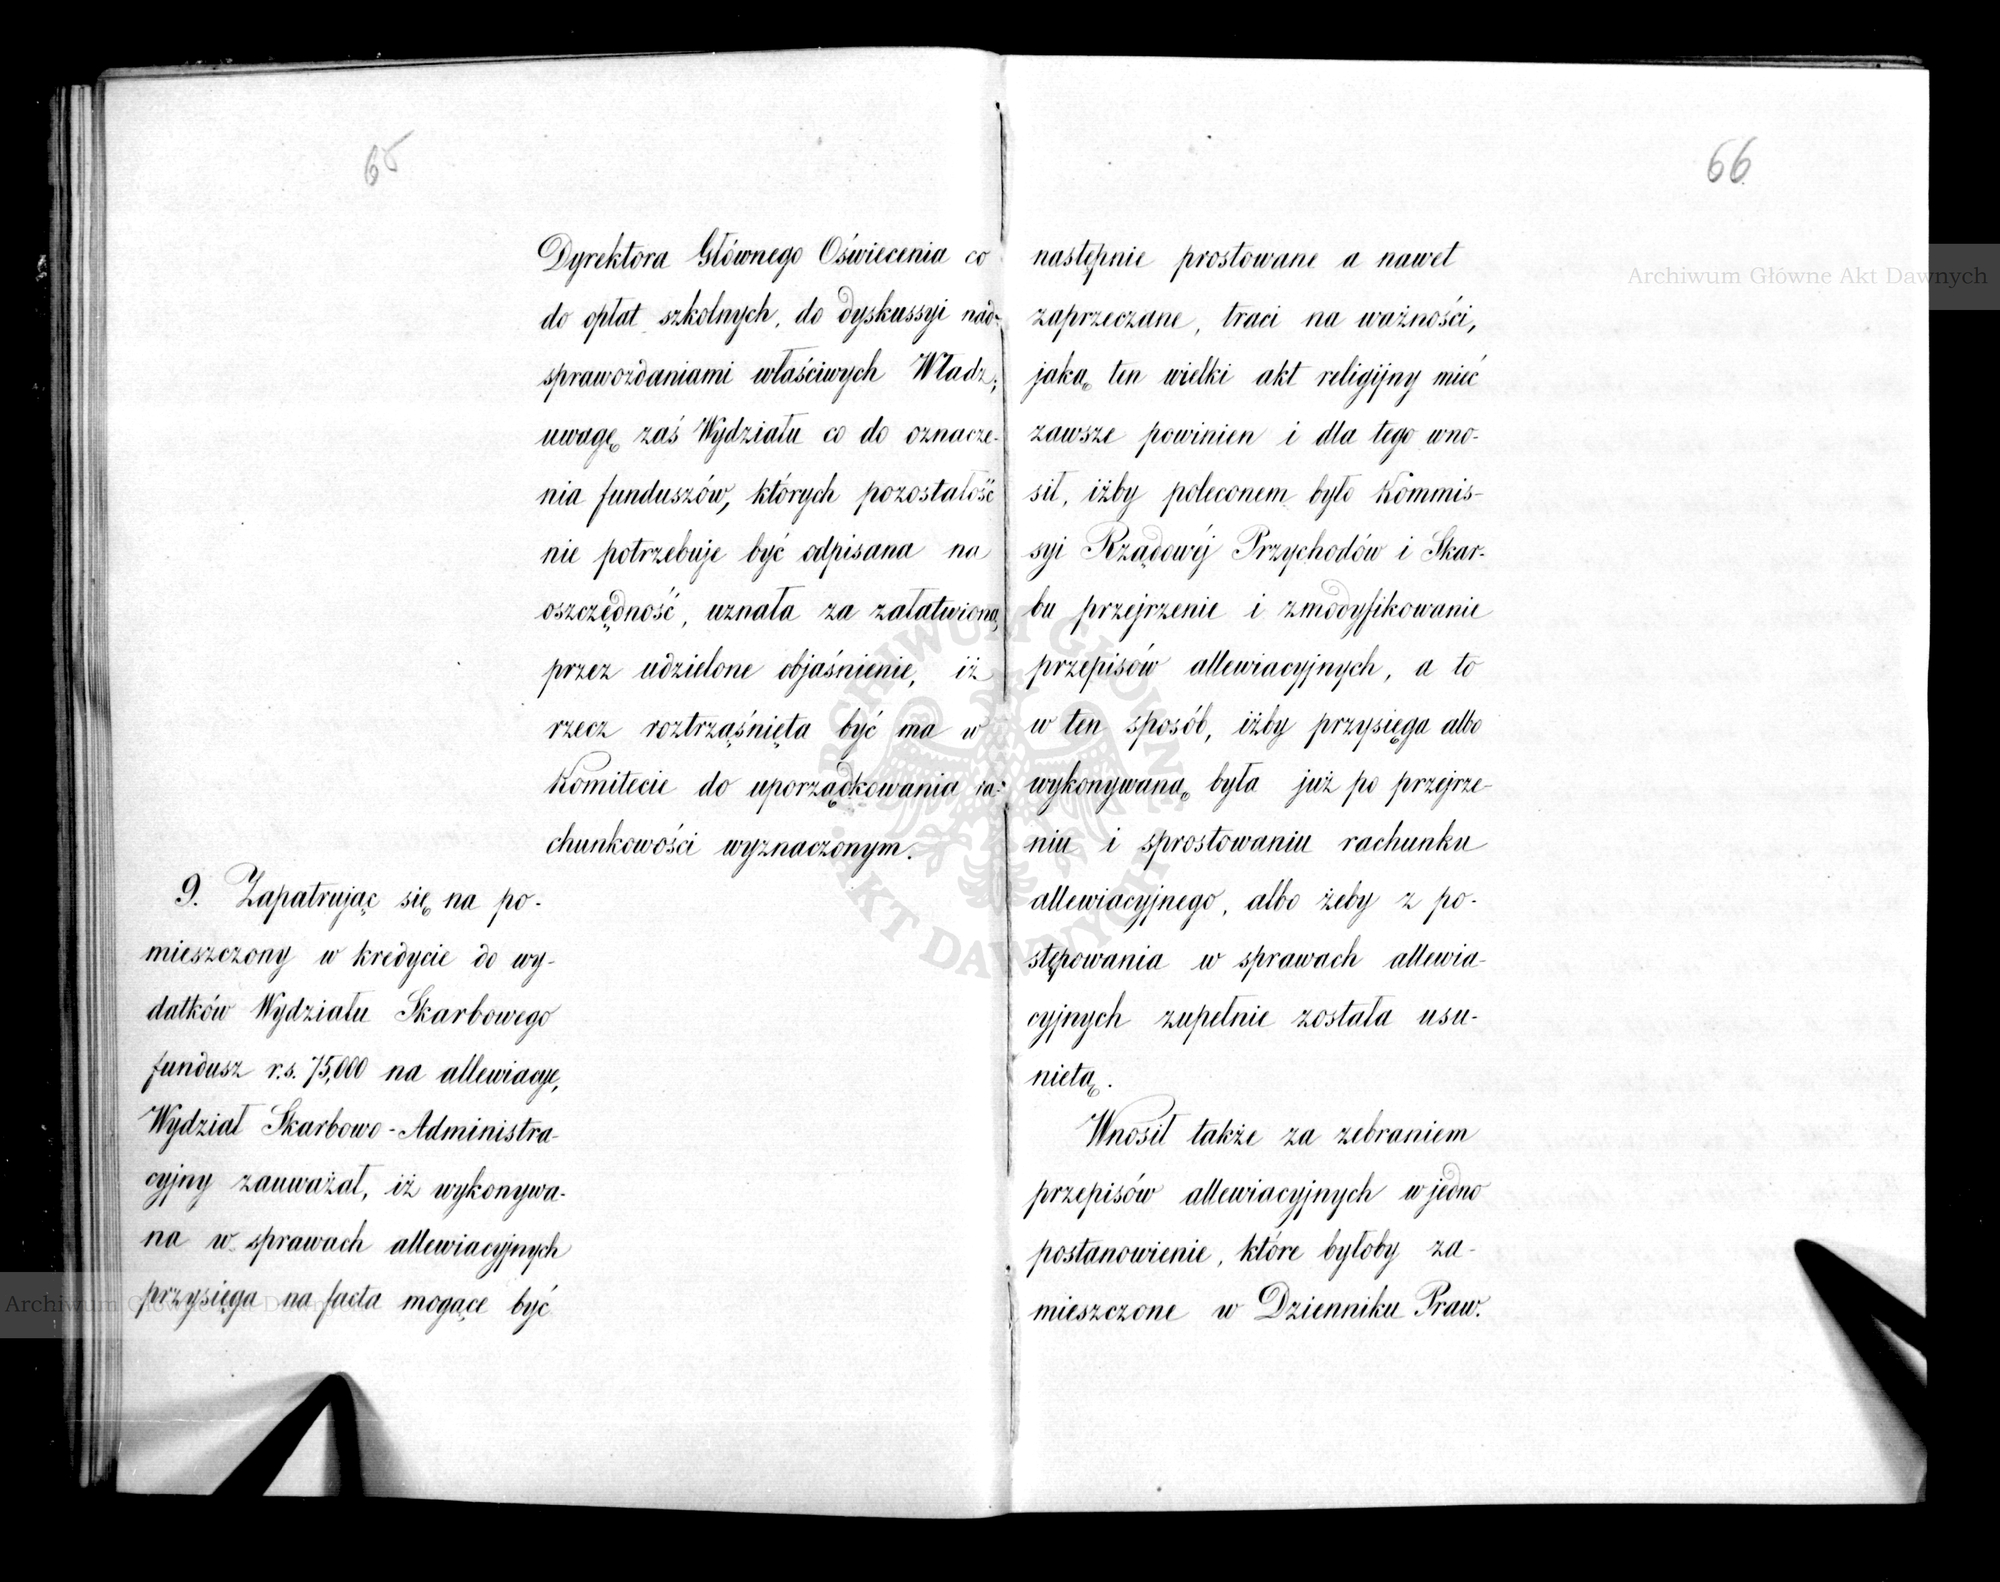 65
Dyrektora Głównego Oświecenia co
do opłat szkolnych, do dyskussyi nad
sprawozdaniami właściwych Władz;
uwagę zaś Wydziału co do oznacze-
nia funduszów, których pozostałość
nie potrzebuje być odpisana na
oszczędność, uznała za załatwioną
przez udzielone objaśnienie, iż
rzecz roztrząśnięta być ma w
Komitecie do uporządkowania ra-
chunkowości wyznaczonym.
9. Zapatrując się na po-
mieszczony w kredycie do wy-
datków Wydziału Skarbowego
fundusz r.s. 75,000 na allewiacye,
Wydział Skarbowo-Administra-
cyjny zauważał, iż wykonywa-
na w sprawach allewiacyjnych
przysięga na facta mogące być
66
następnie prostowane a nawet
zaprzeczane, traci na ważności,
jaką ten wielki akt religijny mieć
zawsze powinien i dla tego wno-
sił, iżby poleconem było Kommis-
syi Rządowéj Przychodów i Skar-
bu przejrzenie i zmodyfikowanie
przepisów allewiacyjnych, a to
w ten sposób, iżby przysięga albo
wykonywaną była już po przejrze-
niu i sprostowaniu rachunku
allewiacyjnego, albo żeby z po-
stępowania w sprawach allewia-
cyjnych zupełnie została usu-
niętą.
Wnosił także za zebraniem
przepisów allewiacyjnych w jedno
postanowienie, które byłoby za-
mieszczone w Dzienniku Praw.
Archiwum Główne Akt Dawnych
Archiwum Główne Akt Dawnych
ARCHIWUM GŁÓWNE AKT DAWNYCH